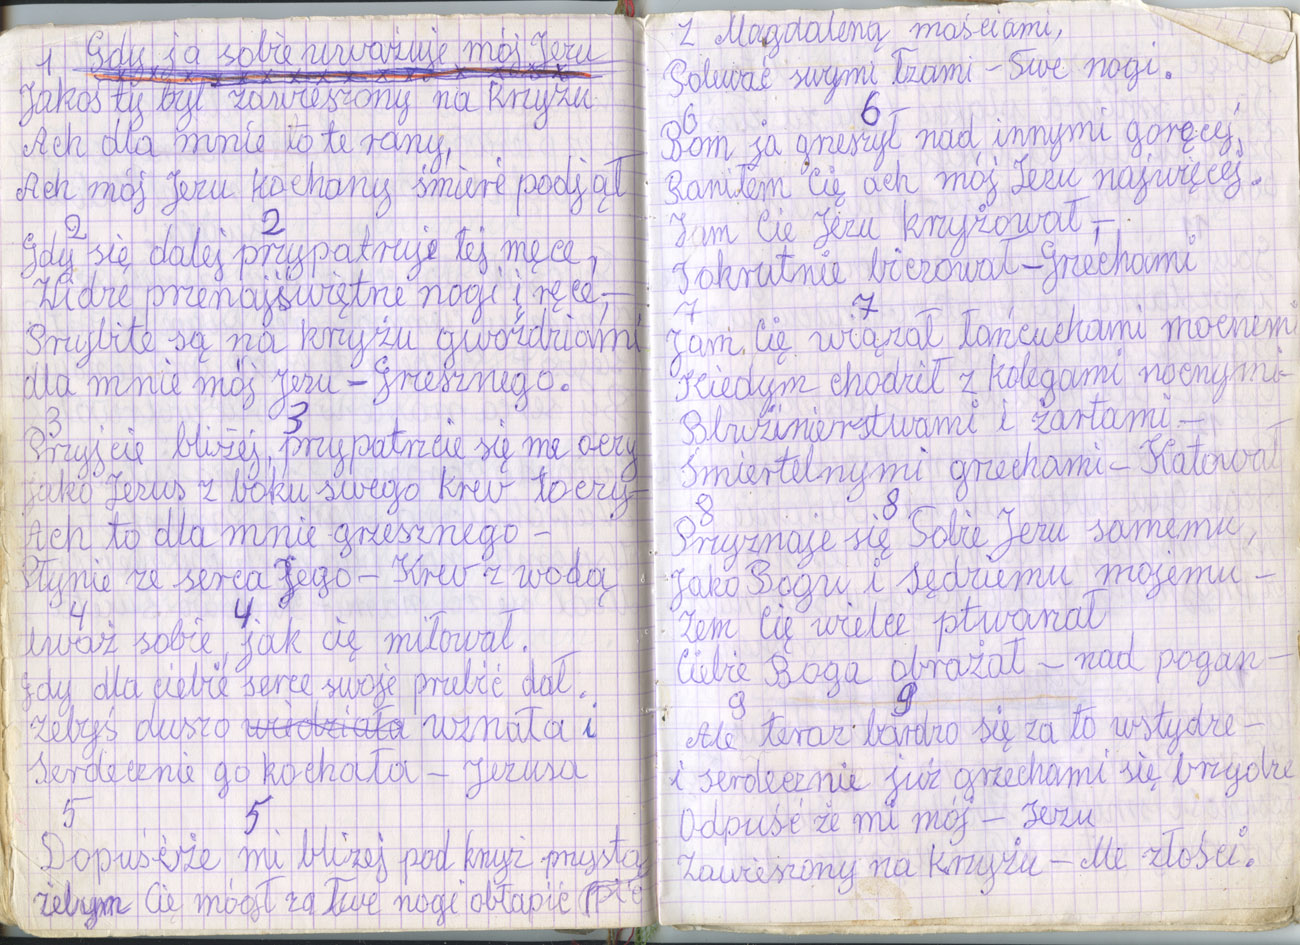 1 Gdy ja sobie urważuje mój Jezu
Jakoś ty był zawieszony na krzyżu
Ach dla mnie to te rany,
Ach mój Jezu kochany śmierć podjął
2 2
Gdy się dalej przypatruje tej męce,
Widzę przenajświętrze nogi i ręce,-
Przybite są na krzyżu gwoździami
dla mnie mój Jezu - Grzesznego.
3 3
Przyjcie bliżej, przypatrzcie się me oczy
jako Jezus z boku swego krew toczy-
Ach to dla mnie grzesznego -
Płynie ze serca Jego - Krew z wodą
4 4
uważ sobie, jak cię miłował.
gdy dla ciebie serce swoje przebić dał.
żebyś duszo widziała uznała i
serdecznie go kochała - Jezusa
5 5
Dopuśćże mi bliżej pod knyż przysta
żebym Cie mógł za Twe nogi obłapić
z Magdaleną maściami,
Polewać swymi łzami - Twe nogi.
6 6
Bom ja grzeszył nad innymi goręcej,
Raniłem Cię ach mój Jezu najwięcej.
Jam Cie Jezu krzyżował -
Tokrutnie biczował - Grzechami
7 7
Jam Cię wiązał łańcuchami mocnemi
Kiedym chodził z kolegami nocnymi-
Bluźnierstwami i żartami -
Śmiertelnymi grzechami - Katował
8 8
Przyznaje się Tobie Jezu samemu,
Jako Bogu i sędziemu mojemu -
Żem Cię wielce
Ciebie Boga obrażał - nad pogan -
9 9
Ale teraz bardzo się za to wstydze -
i serdecznie już grzechami się brzydze
Odpuść że mi mój - Jezu
Zawieszony na krzyżu - Me złości.